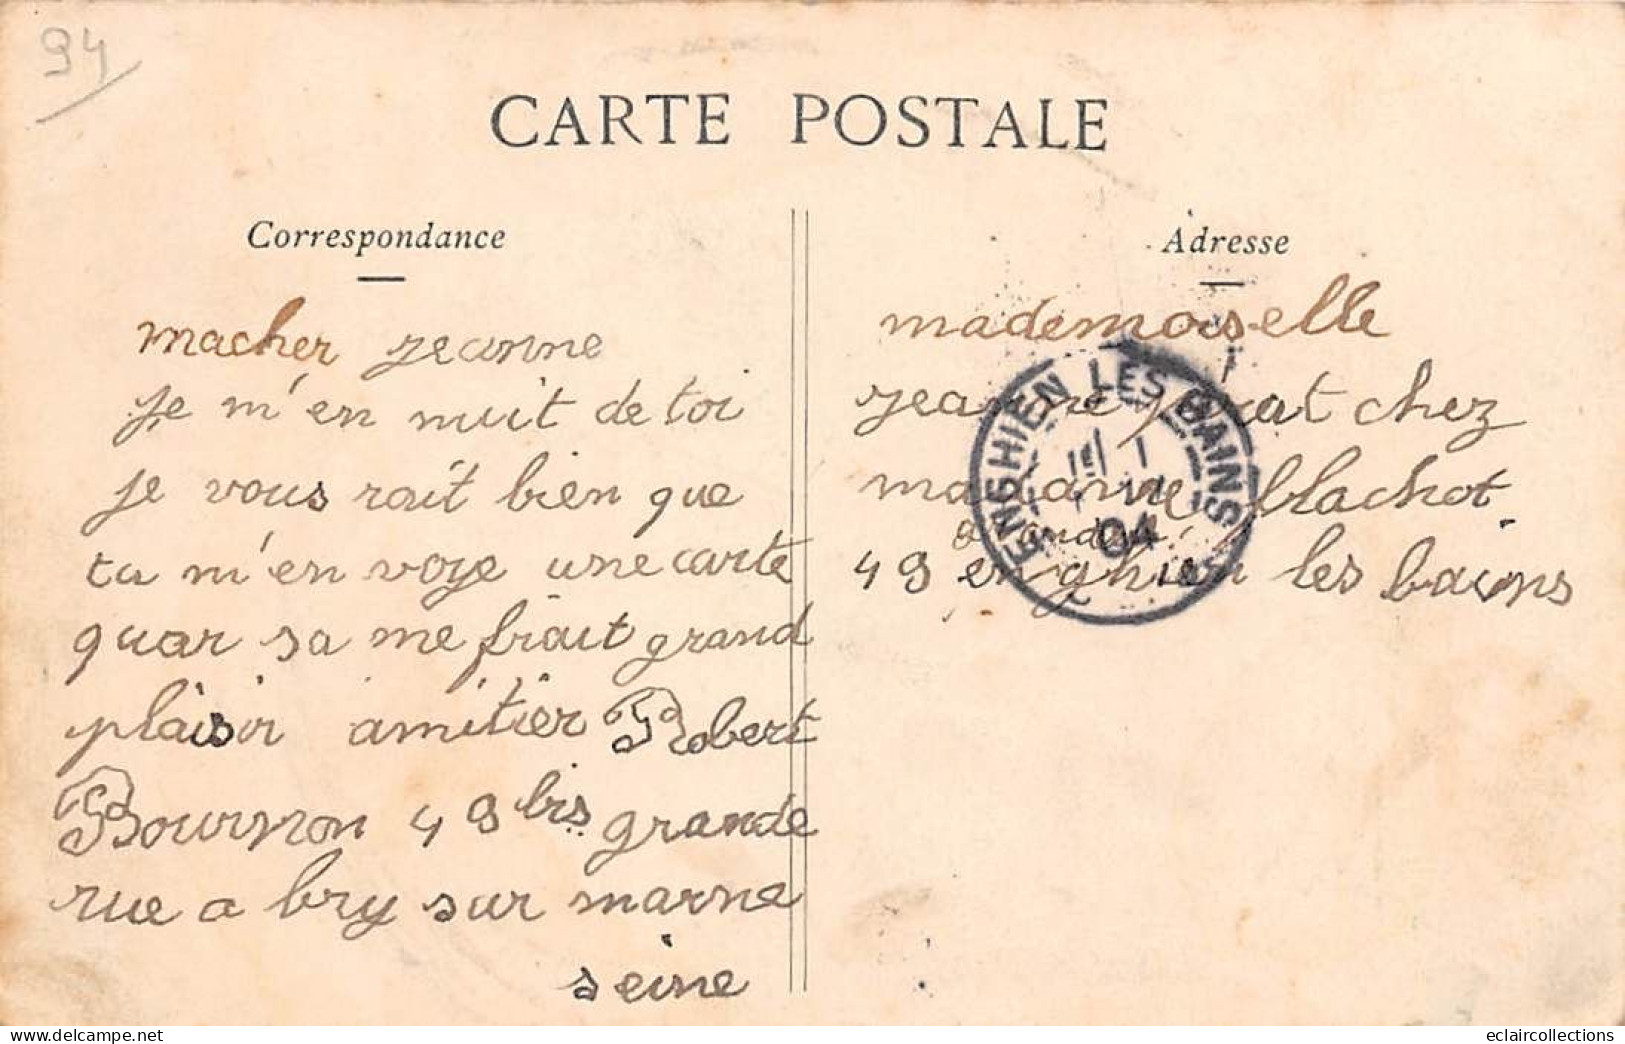 94
CARTE POSTALE
Correspondance
macher jeanne
je m'en nuit de toi
je vous rait bien que
tu m'en voye une carte
quar sa me frait grand
plaisir amitier Robert
Bournon 49 bis grande
rue a bry sur marne
seine
Adresse
mademoiselle
chez
blachot
49 enghien les bains
ENGHIEN LES BAINS
04
eclaircollections